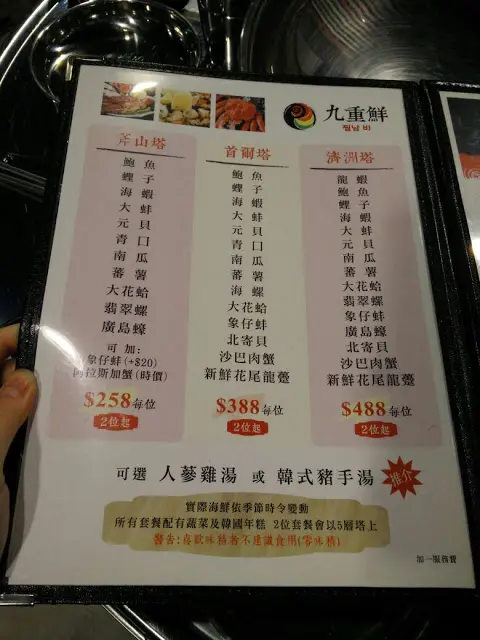 九重鮮
찜냄비
釜山塔
鮑魚
蟶子
海蝦
大蚌
元貝
青口
南瓜
蕃薯
大花蛤
翡翠螺
廣島蠔
可加:
象仔蚌(+$20)
阿拉斯加蟹(時價)
$258每位
2位起
首爾塔
鮑魚
蟶子
海蝦
大蚌
元貝
青口
南瓜
蕃薯
海螺
大花蛤
象仔蚌
北寄貝
沙巴肉蟹
新鮮花尾龍躉
$388每位
2位起
濟洲塔
龍蝦
鮑魚
蟶子
海蝦
大蚌
元貝
南瓜
蕃薯
大花蛤
翡翠螺
象仔蚌
廣島蠔
北寄貝
沙巴肉蟹
新鮮花尾龍躉
$488每位
2位起
可選 人蔘雞湯 或 韓式豬手湯
推介
實際海鮮依季節時令變動
所有套餐配有蔬菜及韓國年糕 2位套餐會以5層塔上
警告:喜歡味精者不建議食用(零味精)
加一服務費